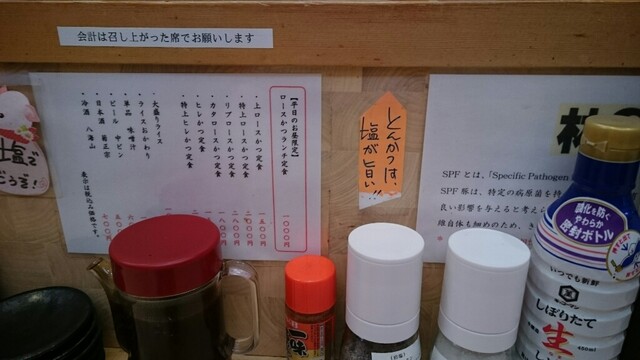 会計は召し上がった席でお願いします
【平日のお昼限定】
ロースかつランチ定食 一〇〇〇円
・上ロースかつ定食
・特上ロースかつ定食
・リブロースかつ定食
・カタロースかつ定食
・ヒレかつ定食
・特上ヒレかつ定食
・大盛りライス
・ライスおかわり
・単品 味噌汁
・ビール 中ビン
・日本酒 菊正宗
・冷酒 八海山
表示は税込み価格です。
塩で
どうぞ!
とんかつは、
塩が旨い!!
SPF とは、「Specific Pathogen
SPF 豚は、特定の病原菌を持
良い影響を与えると考えら
維自体も細めのため、き
一味
鮮度を防ぐ
やわらか
密封ボトル
いつでも新鮮
しぼりたて
生
450ml